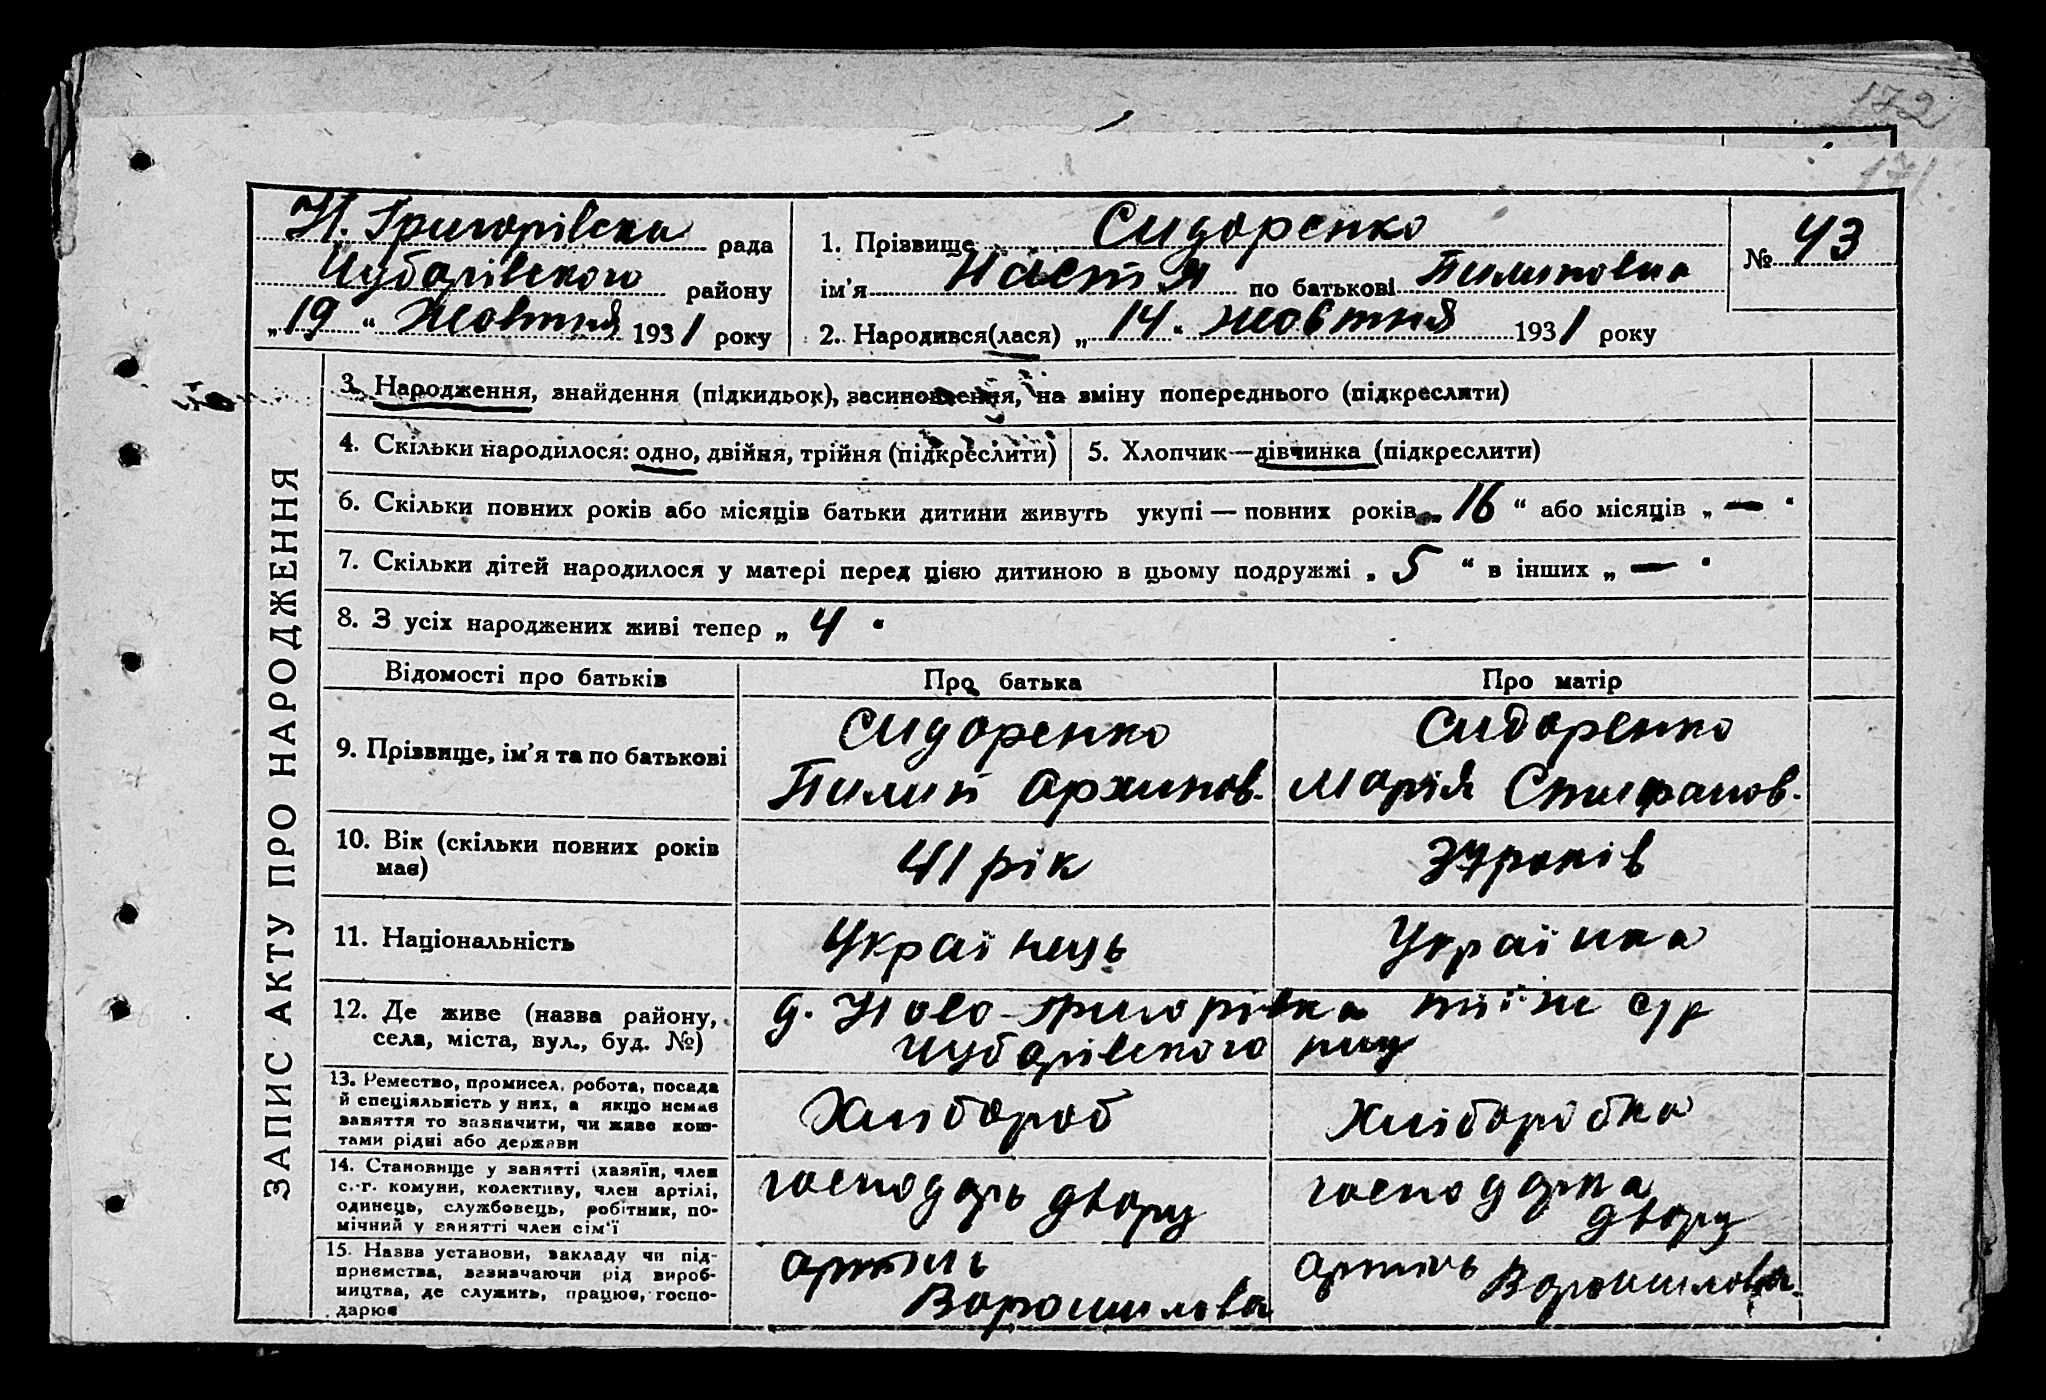 172
171
Н. Григорівска рада
Чубарівского району
„19“ Жовтня 1931 року
1. Прізвище Сидоренко
ім’я Настя по батькові Пилиповна
2. Народився(лася) „14“ жовтня 1931 року
№ 43
ЗАПИС АКТУ ПРО НАРОДЖЕННЯ
3. Народження, знайдення (підкидьок), засиновлення, на зміну попереднього (підкреслити)
4. Скільки народилося: одно, двійня, трійня (підкреслити)
5. Хлопчик—дівчинка (підкреслити)
6. Скільки повних років або місяців батьки дитини живуть укупі — повних років „16“ або місяців „—“
7. Скільки дітей народилося у матері перед цією дитиною в цьому подружжі „5“ в інших „—“
8. З усіх народжених живі тепер „4“
Відомості про батьків
Про батька
Про матір
9. Прізвище, ім’я та по батькові
Сидоренко
Пилип Архипов.
Сидоренко
Марія Епифанов.
10. Вік (скільки повних років
має)
41 рік
37 років
11. Національність
Українець
Українка
12. Де живе (назва району,
села, міста, вул., буд. №)
д. Ново-Григорівка тії же с/р
Чубарівского р-ну
13. Ремество, промисел, робота, посада
й спеціяльність у них, а якщо немає
заняття то зазначити, чи живе кош-
тами рідні або держави
Хлібороб
Хліборобка
14. Становище у занятті (хазяїн, член
с.-г. комуни, колективу, член артілі,
одинець, службовець, робітник, по-
мічний у занятті член сім’ї
господарь двору
господарка
двору
15. Назва установи, закладу чи під-
приємства, зазначаючи рід вироб-
ництва, де служить, працює, госпо-
дарює
артіль
Ворошилова
артіль Ворошилова